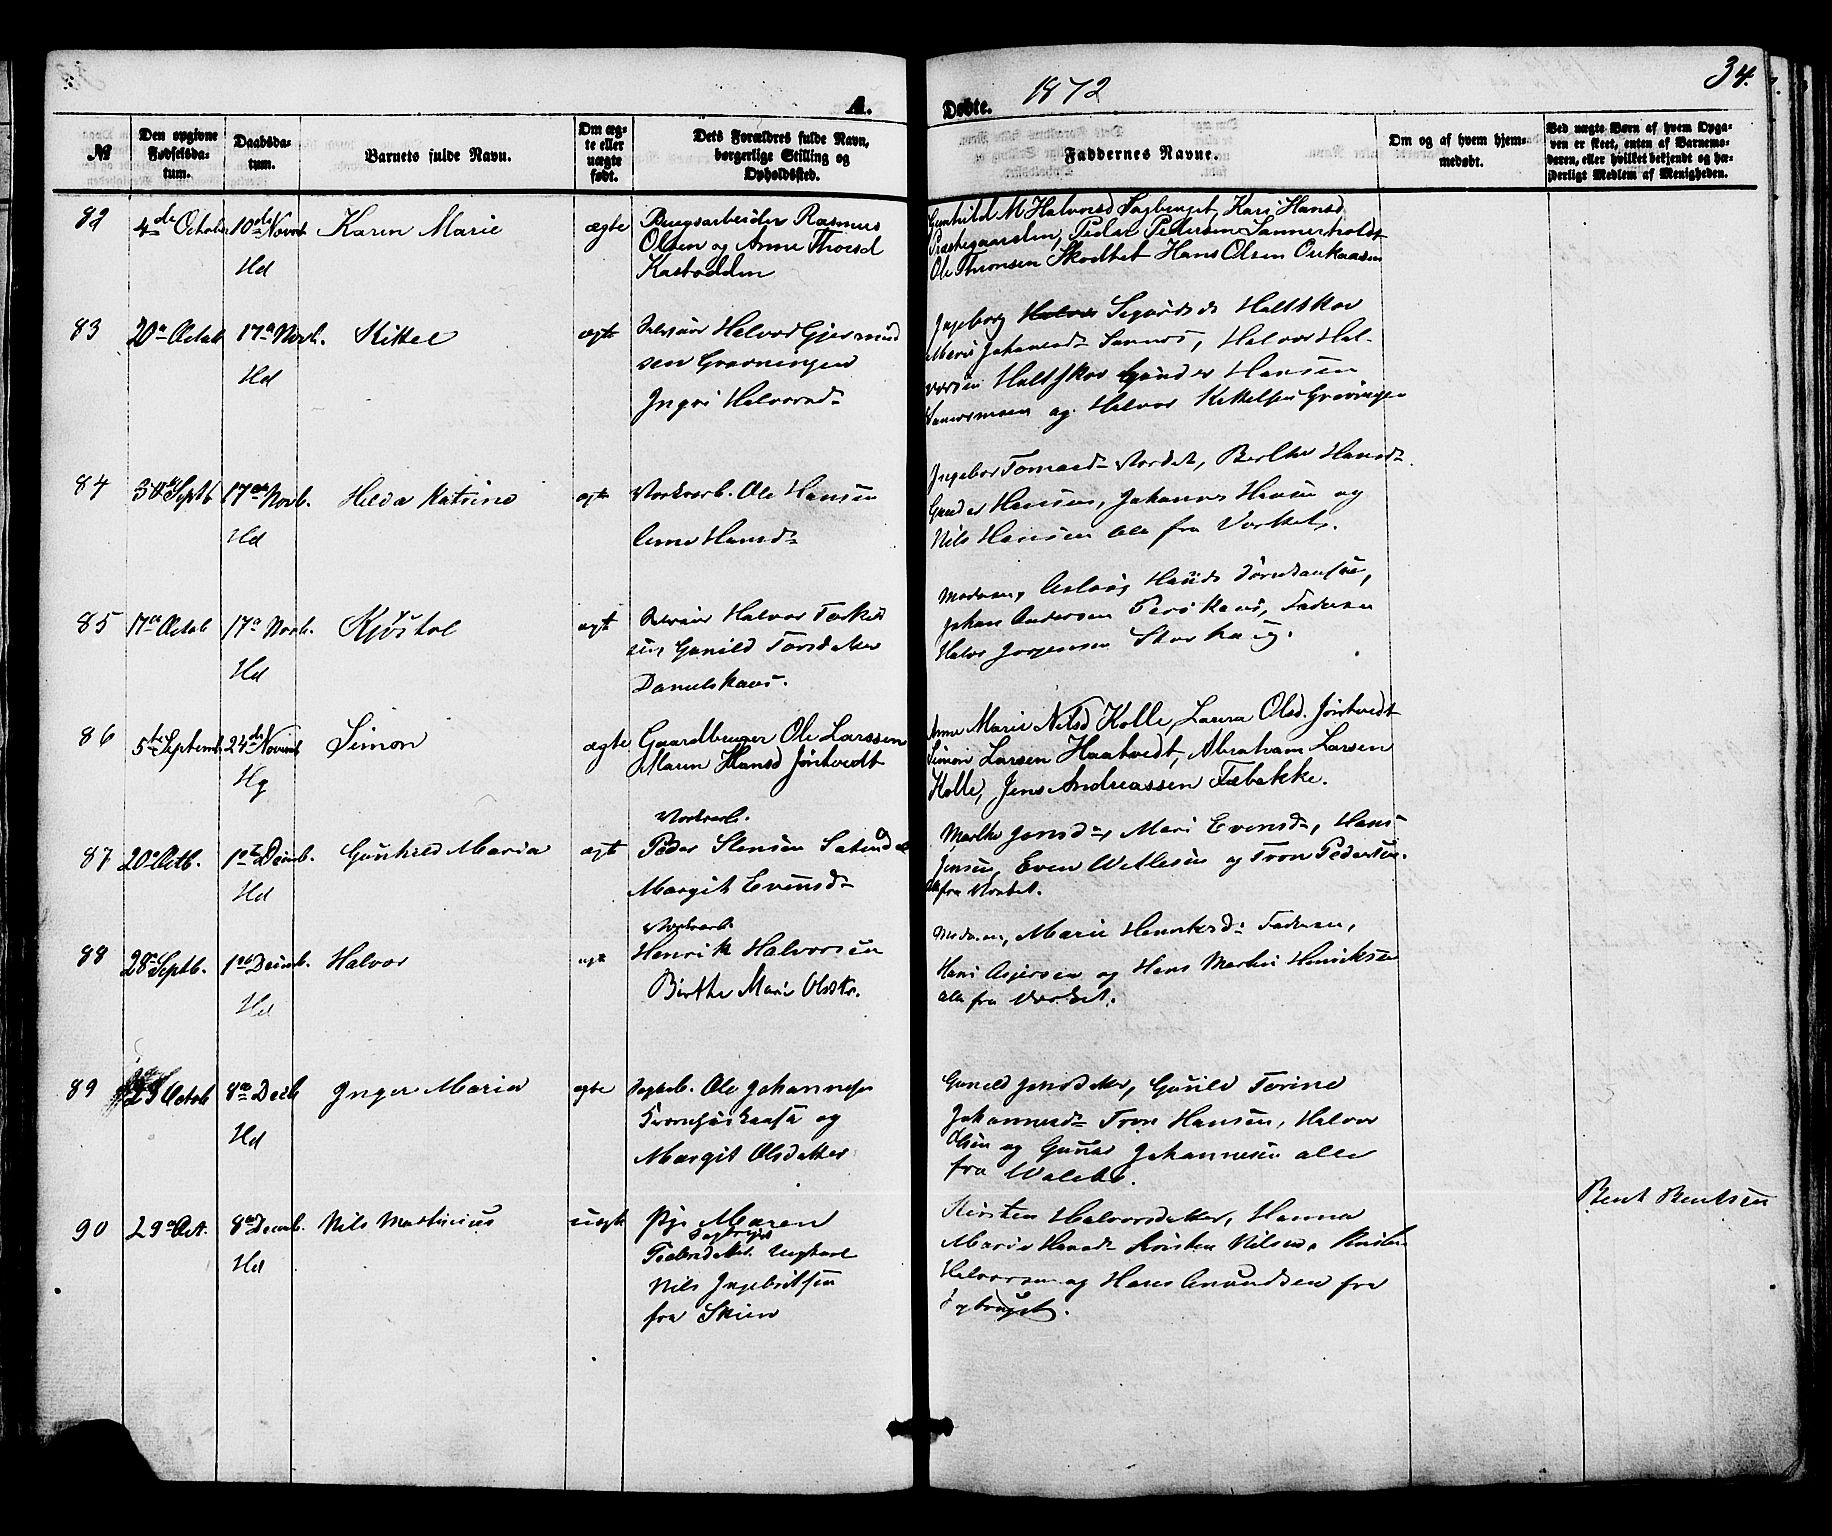 A. Døbte. 1872 34.
№
Den opgivne Fødselsdatum.
Daabsdatum.
Barnets fulde Navn.
Om ægte eller uægte født.
Dets Forældres fulde Navn, borgerlige Stilling og Opholdssted.
Faddernes Navne.
Om og af hvem hjemmedøbt.
Ved uægte Børn af hvem Opgaven er skeet, enten af Barnemoderen, eller hvilket bekjendt og hæderligt Medlem af Menigheden.
82 4de October 10de Novbr Karen Marie ægte
Hd
Brugsarbeider Rasmus
Olsen og Anne Thorsd
Kastodden
Gunhild M Halvorsd Sagbruget, Kari Hansd
Præstegaarden, Peder Pedersen Sannerholdt
Ole Thronsen Hans Olsen
83 20a Octob 17a Novb. Kittel ægt
Hd
Halvor Gjermund
sen Gravningen
Ingri Halvorsd
Ingeborg Sigurdsd Holtskov
Mari Johannesd Sannes, Halvor Hal-
vorsen Holtskov Gunder Hansen
og Halvor Kittelsen Gravningen
84 Septb 17de Novb. Helda Katrine ægt
Hd
Verksarb. Ole Hansen
Anne Hansd
Ingebor Verket, Berthe Hansd
Gunder Hansen, Johannes Hansen og
Nils Hansen alle fra Verket.
85 17de Octob 17a Novb. Kjøstol ægt
Hd
Halvor Torkild
sen, Gunild Torsdatter
Danielskaas.
Moderen, Aslaug
Johan Andersen Faderen
Halvor Jørgensen Storhaug.
86 5te Septemb 24de Novemb Simon ægte
Hg
Gaardbruger Ole Larssen
Maren Hansd Jøntvedt
Anne Marie Nilsd Kolle, Laura Olsd. Jøntvedt
Simon Larsen Haatvedt, Abraham Larsen
Kolle, Jens Andreassen Fæbakke.
87 20a Octb. 1ste Decmb. Gunhild Maria ægt
Hd
Verksarb.
Peder Stensen og
Margit Evensd
Marthe Jensd, Mari Evensd, Hans
Jensen, Even Wetlesen og Tron Pedersen
alle fra Verket.
88 28a Septb. 1ste Decmb. Halvor ægt
Hd
Verksarb.
Henrik Halvorsen
Birthe Marie Olsdtr.
Moderen, Marie Henriksd Faderen,
Hans og Hans Martin Henriksen
alle fra Verket.
89 29 Octob 8de Decb Inger Maria ægte
Hd
Ole Johannesen
og
Margit Olsdatter
Gunild Jensdatter, Gunild Torine
Johannesd Tron Hansen, Halvor
Olsen og Gunar Johannesen alle
fra
90 29a Oct. 8de Decmb. Nils Martinius uægt
Hd
Pige Maren
Sagbruget
Ungkarl
Nils Ingebritsen
fra Skien
Kirsten Halvorsdatter, Hanna
Marie Hansd Kristen Nilsen,
Halvorsen og Hans Amundsen fra
Sagbruget.
Bent Bentsen